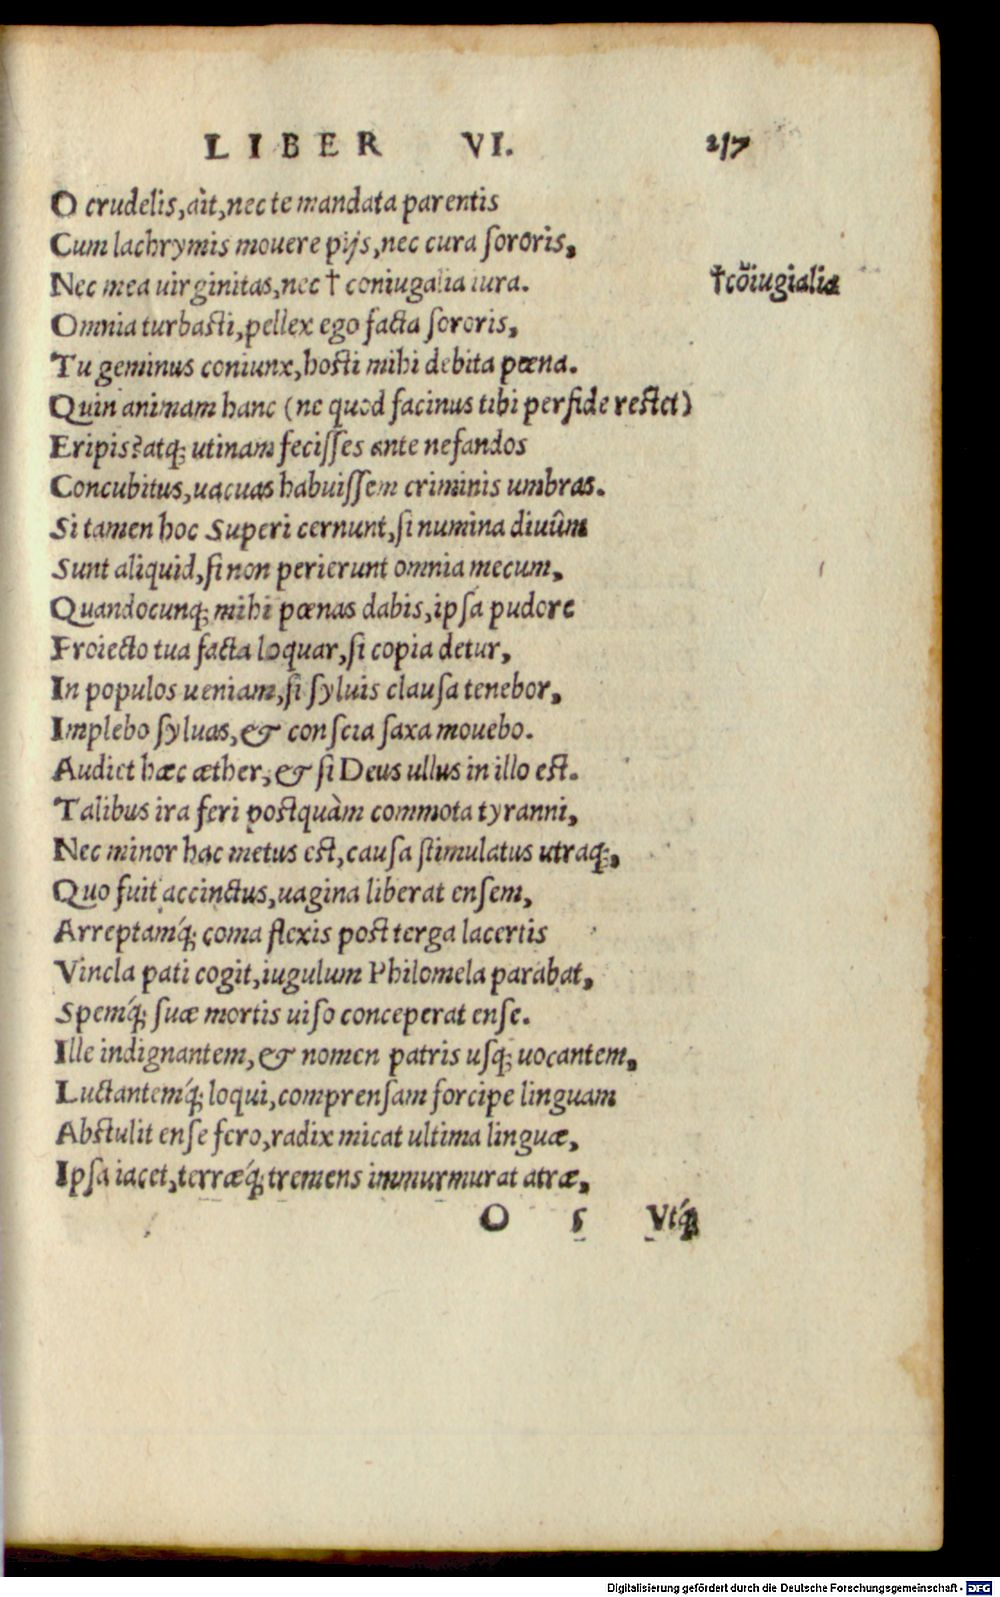 LIBER VI. 217
O crudelis, ait, nec te mandata parentis
Cum lachrymis mouere pijs, nec cura sororis,
Nec mea uirginitas, nec † coniugalia iura. †cõiugialia
Omnia turbasti, pellex ego facta sororis,
Tu geminus coniunx, hosti mihi debita pœna.
Quin animam hanc (ne quod facinus tibi perfide restet)
Eripis? atq; utinam fecisses ante nefandos
Concubitus, uacuas habuissem criminis umbras.
Si tamen hoc Superi cernunt, si numina diuûm
Sunt aliquid, si non perierunt omnia mecum,
Quandocunq; mihi pœnas dabis, ipsa pudore
Proiecto tua facta loquar, si copia detur,
In populos ueniam, si syluis clausa tenebor,
Implebo syluas, & conscia saxa mouebo.
Audiet hæc æther, & si Deus ullus in illo est.
Talibus ira feri postquàm commota tyranni,
Nec minor hac metus est, causa stimulatus utraq;,
Quo fuit accinctus, uagina liberat ensem,
Arreptamq́; coma flexis post terga lacertis
Vincla pati cogit, iugulum Philomela parabat,
Spemq́; suæ mortis uiso conceperat ense.
Ille indignantem, & nomen patris usq; uocantem,
Luctantemq́; loqui, comprensam forcipe linguam
Abstulit ense fero, radix micat ultima linguæ,
Ipsa iacet, terræq́; tremens immurmurat atræ,
O 5 Vtq́;
Digitalisierung gefördert durch die Deutsche Forschungsgemeinschaft - DFG